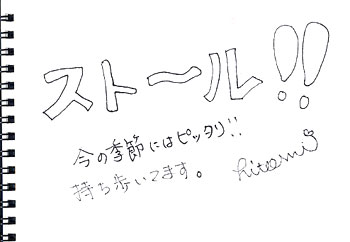 ストール!!
今の季節にはピッタリ!!
持ち歩いてます。
hitomi